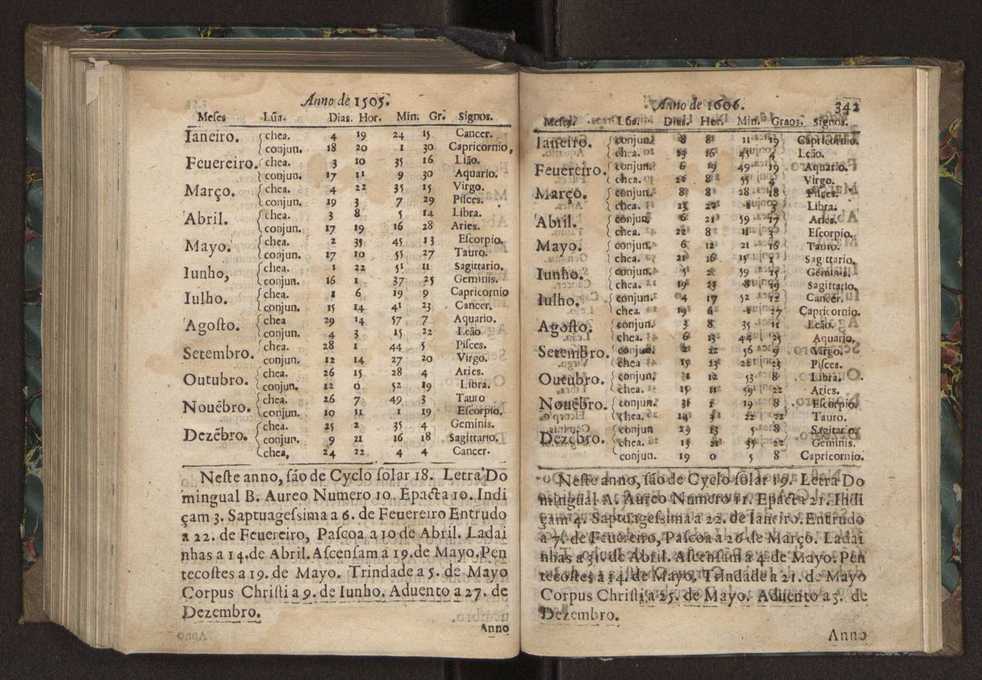 Anno de 1505.
Meses Lũa. Dias. Hor. Min. Gr. Signos.
Ianeiro. chea. 4 19 24 15 Cancer.
conjun. 18 20 1 30 Capricornio,
Feuereiro. chea. 3 10 35 16 Lião.
conjun. 17 11 9 30 Aquario.
Março. chea. 4 22 35 15 Virgo.
conjun. 19 3 7 29 Pisces.
Abril. chea. 3 8 5 14 Libra.
conjun. 17 19 16 28 Aries.
Mayo. chea. 2 35 45 13 Escorpio.
conjun. 17 10 55 27 Tauro.
Iunho, chea. 1 22 51 11 Sagittario.
conjun. 16 1 37 25 Geminis.
Iulho. chea. 1 6 19 9 Capricornio
conjun. 15 14 41 23 Cancer.
Agosto. chea 29 14 57 7 Aquario.
conjun. 4 3 15 22 Leão
Setembro. chea. 28 1 44 5 Pisces.
conjun. 12 14 27 20 Virgo.
Outubro. chea. 26 15 28 4 Aries.
conjun. 12 0 52 19 Libra.
Nouẽbro. chea. 26 7 49 3 Tauro
conjun. 10 11 1 19 Escorpio.
Dezẽbro. chea. 25 2 35 4 Geminis.
conjun. 9 21 16 18 Sagittario.
chea, 24 22 4 4 Cancer.
Neste anno, são de Cyclo solar 18. Letra Do
mingual B. Aureo Numero 10. Epacta 10. Indi
çam 3. Saptuagessima a 6. de Feuereiro Entrudo
a 22. de Feuereiro, Pascoa a 10 de Abril. Ladai
nhas a 14.de Abril. Ascensam a 19.de Mayo.Pen
tecostes a 19. de Mayo. Trindade a 5. de Mayo
Corpus Christi a 9. de Iunho. Aduento a 27. de
Dezembro.
Anno
Anno de 1606. 342
Meses. Lũa. Dias. Hor. Min. Graos. Signos.
Ianeiro. conjun. 8 8 11 19 Capricornio.
chea. Leão.
Feuereiro. conjun. 6 9 49 19 Aquario.
chea. 22 8 55 4 Virgo.
Março. conjun. 8 8 28 18 Pisces.
chea. Libra.
Abril. conjun. 6 21 59 17 Aries.
chea. 22 8 11 3 Escorpio.
Mayo. conjun. 6 12 21 16 Tauro.
chea. 21 16 15 1 Sagittario.
Iunho. conjun. Geminis.
chea. 19 23 Sagittario.
Iulho. conjun. 4 17 52 12 Cancer.
chea. 19 6 1 27 Capricornio.
Agosto. conjun. 3 8 35 11 Leão.
chea. 17 13 44 25 Aquario.
Setembro. conjun. 56 9 Virgo.
chea 15 23 Pisces.
Outubro. conjun. 1 12 53 8 Libra.
chea. 15 11 59 22 Aries.
Nouẽbro. conjun. 19 8 Escorpio.
chea. 14 22 Tauro.
Dezẽbro. conjun 29 13 5 8 Sagitario.
chea. 15 21 35 22 Geminis.
conjun. 19 0 5 8 Capricornio.
Neste anno, são de Cyclo solar 19. Letra Do
mingual A. Aureo Numero 11. Epacta 21. Indi
çam 4. Saptuagessima a 22. de Ianeiro. Entrudo
a 7. de Feuereiro, Pascoa a 26 de Março. Ladai
nhas a de Abril. Ascensam a 4 de Mayo. Pen
tecostes a 14. de Mayo. Trindade a 21. de Mayo
Corpus Christi a 25. de Mayo. Aduento a 3. de
Dezembro.
Anno